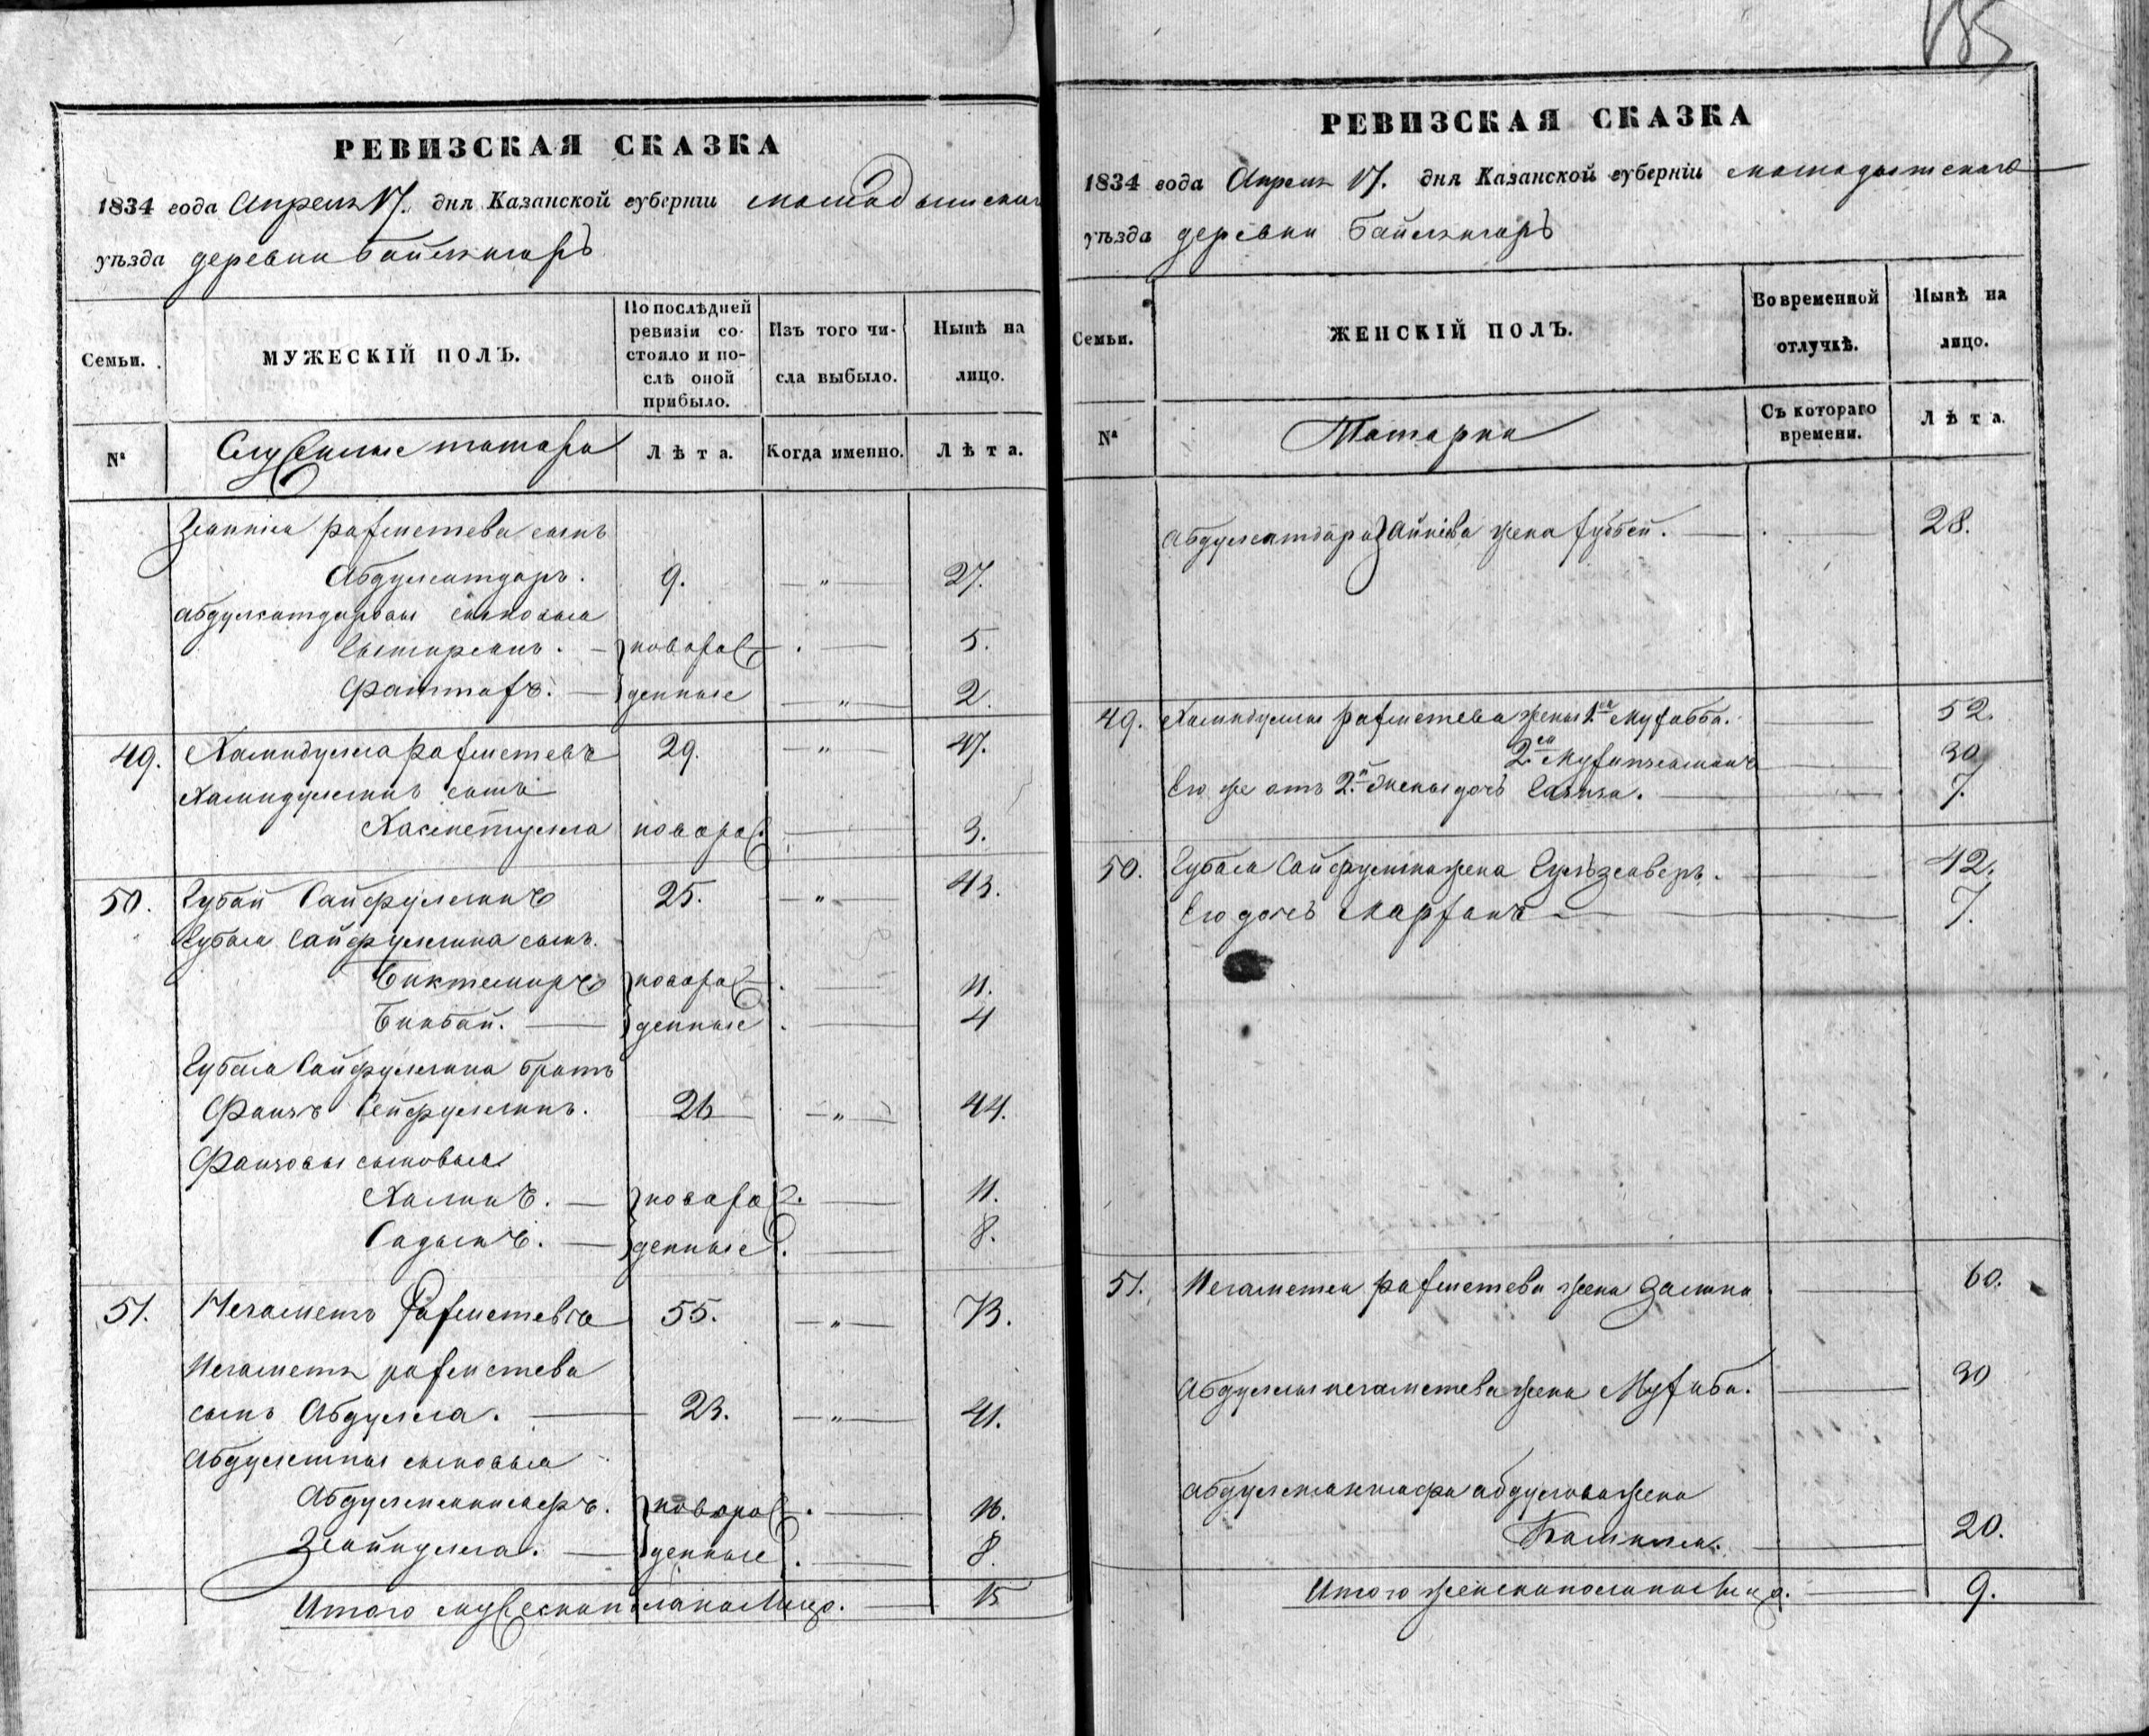 185
РЕВИЗСКАЯ СКАЗКА
1834 года Апреля 17. дня Казанской губерніи мамадышскаго
уѣзда деревни Байлянгаръ
Семьи.
МУЖЕСКІЙ ПОЛЪ.
По послѣдней ревизіи состояло и послѣ оной прибыло.
Изъ того числа выбыло.
Нынѣ на лицо.
№
Служилые татара
Лѣта.
Когда именно.
Лѣта.
Рахметева сынъ
Абдулсатдаръ. 9. — „ — 27.
Абдулсатдаровы сыновья
новорож 5.
Фаттахъ. — денные — „ — 2.
49. Хамидулла Рахметевъ 29. — „ — 47.
Хамидуллинъ сынъ
Хасметулла новорож. 3.
50. Губай Сайфуллинъ 25. — „ — 43.
Губая Сайфуллина сынъ.
Биктемиръ новорож. — 11.
Бикбай. — денные . — 4
Губая Сайфуллина братъ
Фаизъ Сейфуллинъ. 26 — „ — 44.
Фаизовы сыновья
Халинъ. — новорож. — 11.
Садыкъ. — денные . — 8.
51. Негаметъ Рахметевъ 55. — „ — 73.
Негаметя рахметева
сынъ Абдулла. — 23. — „ — 41.
Абдуллины сыновья
новорож. — 16.
Зейнулла. — денные . — 8.
Итого мужеска пола налицо. — 15
РЕВИЗСКАЯ СКАЗКА
1834 года Апреля 17. дня Казанской губерніи мамадышскаго
уѣзда деревни Байлянгаръ
Семьи.
ЖЕНСКІЙ ПОЛЪ.
Во временной отлучкѣ.
Нынѣ на лицо.
№
Татарки
Съ котораго времени.
Лѣта.
Абдулсатдара Зайниева жена Хуббей. — . — 28.
49. Хамидуллы рахметева жены 1.ая Мухабба. — 52.
2.ая — 30
Его же отъ 2.й жены дочь — 7.
50. Губая Сайфуллина жена Гульзеаверъ. — 42.
Его дочь Марфанъ — 7.
51. Негаметя рахметева жена Залика — 60.
Абдуллы негаметева жена Мухиба. — 30
абдулова жена
Камиля. — 20.
Итого женска пола налицо. — 9.